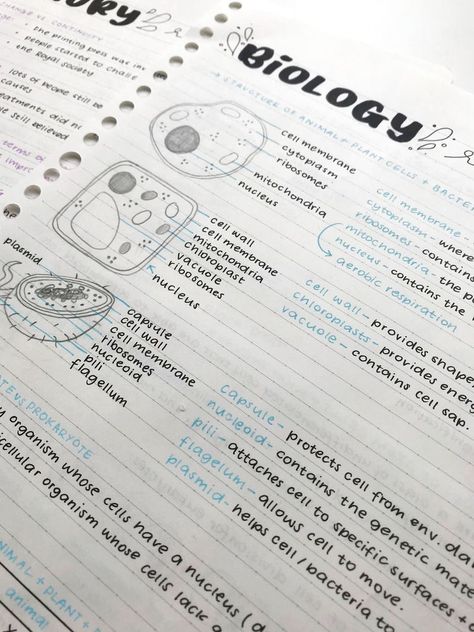 CHANGE VS. CONTINUITY
the printing press was
people started to
the Royal Society
lots of people still
causes
still believed
terms of
BIOLOGY
→ STRUCTURE OF ANIMAL + PLANT CELLS +
cell membrane
cytoplasm
ribosomes
mitochondria
nucleus
cell wall
cell membrane
mitochondria
chloroplast
vacuole
ribosomes
nucleus
plasmid
capsule
cell wall
cell membrane
ribosomes
nucleoid
pili
flagellum
cell membrane
cytoplasm - where
ribosomes - contains
mitochondria - the
nucleus - contains the
→ aerobic respiration
cell wall - provides shape
chloroplasts - provides
vacuole - contains cell sap.
capsule - protects cell from env.
nucleoid - contains the genetic
pili - attaches cell to specific surfaces +
flagellum - allows cell to move.
plasmid - helps cell / bacteria to
PROKARYOTE
organism whose cells have a nucleus
organism whose cells lack
+ PLANT +
animal